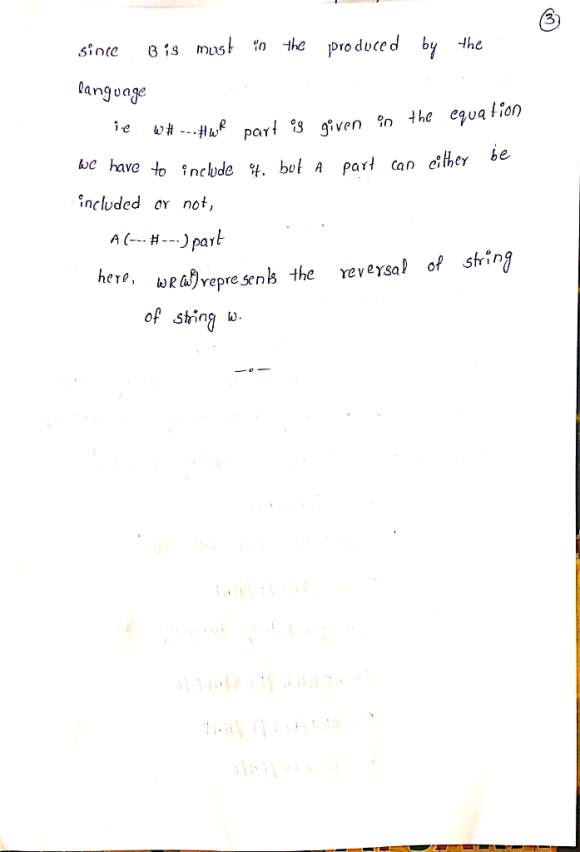 3
since B is must in the produced by the
language
i.e w# ---#wᴿ part is given in the equation
we have to include it. but A part can either be
included or not,
A (---#---) part
here, WR(wᴿ) represents the reversal of string
of string w.
—o—